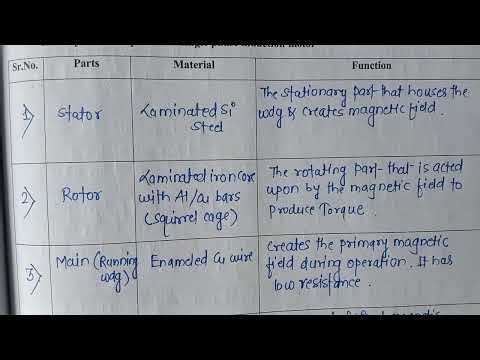 induction motor
Sr.No. Parts Material Function
1) Stator Laminated Si Steel The stationary part that houses the wdg & creates magnetic field.
2) Rotor Laminated iron core with Al/cu bars (squirrel cage) The rotating part that is acted upon by the magnetic field to Produce Torque.
3) Main (Running wdg) Enameled Cu wire Creates the primary magnetic field during operation. It has low resistance.